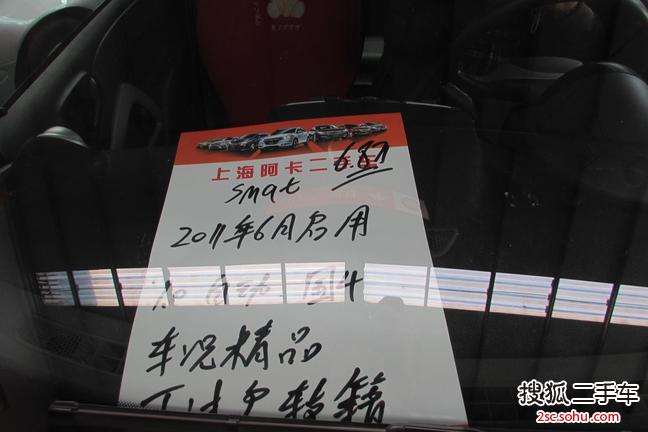 上海阿卡二手车
6.8万
smat
2011年6月启用
1.0 自动
车况精品
可过户转籍
搜狐二手车
2sc.sohu.com